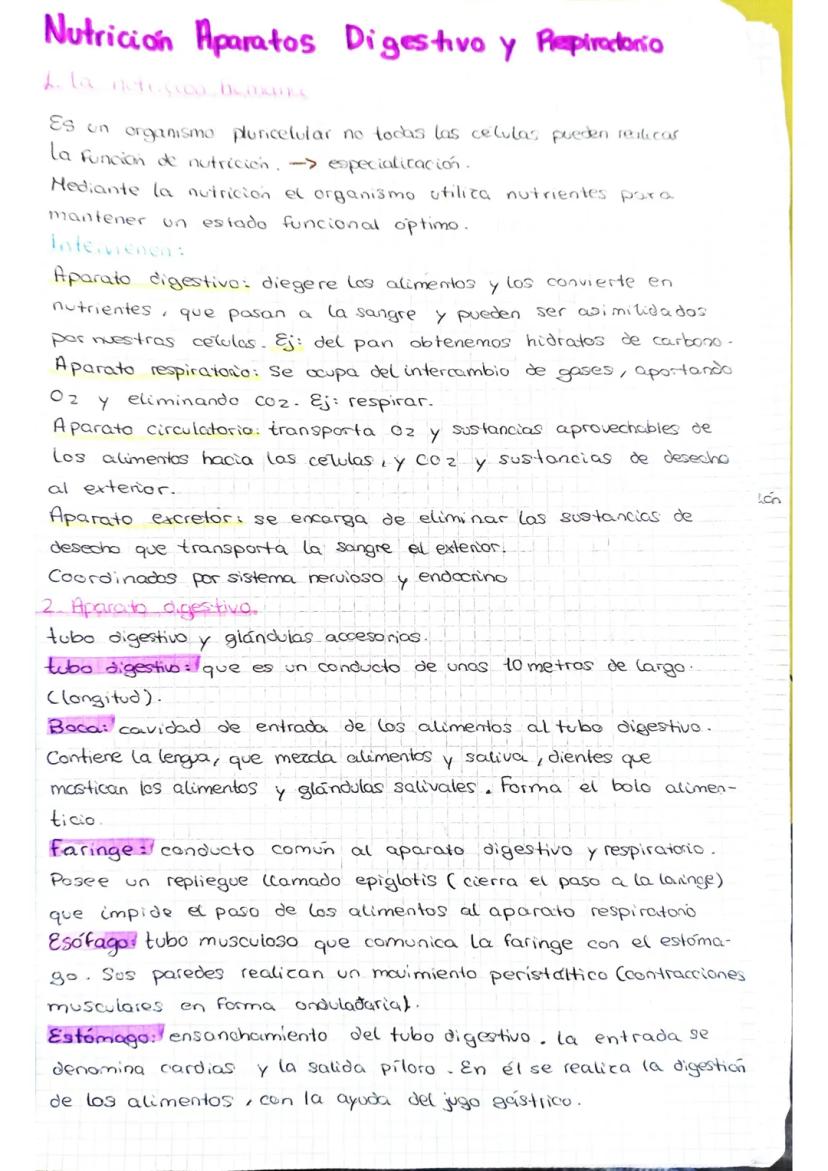 Nutrición Aparatos Digestivo y Respiratorio
1. La nutrición humana
Es un organismo pluricelular no todas las células pueden realicar
la función de nutrición. → especialización.
Mediante la nutrición el organismo utiliza nutrientes para
mantener un estado funcional óptimo.
Intervienen:
Aparato digestivo: diegere los alimentos y los convierte en
nutrientes, que pasan a la sangre y pueden ser asimilidados
por nuestras células. Ej: del pan obtenemos hidratos de carbono.
Aparato respiratorio: Se ocupa del intercambio de gases, aportando
O2 y eliminando CO2. Ej: respirar.
Aparato circulatorio: transporta O2 y sustancias aprovechables de
los alimentos hacia las células, y CO2 y sustancias de desecho
al exterior.
ión
Aparato excretor: se encarga de eliminar las sustancias de
desecho que transporta la sangre el exterior.
Coordinados por sistema nervioso y endocrino
2. Aparato digestivo.
tubo digestivo y glándulas accesorias.
tubo digestivo: que es un conducto de unos 10 metros de largo.
(longitud).
Boca: cavidad de entrada de los alimentos al tubo digestivo.
Contiene la lengua, que mezcla alimentos y saliva, dientes que
mastican los alimentos y glándulas salivales. Forma el bolo alimen-
ticio.
Faringe: conducto común al aparato digestivo y respiratorio.
Posee un repliegue llamado epiglotis (cierra el paso a la laringe)
que impide el paso de los alimentos al aparato respiratorio
Esófago: tubo musculoso que comunica la faringe con el estóma-
go. Sus paredes realizan un movimiento peristáltico (contracciones
musculares en forma onduladaria).
Estómago: ensanchamiento del tubo digestivo. la entrada se
denomina cardias y la salida píloro. En él se realiza la digestión
de los alimentos, con la ayuda del jugo gástrico.